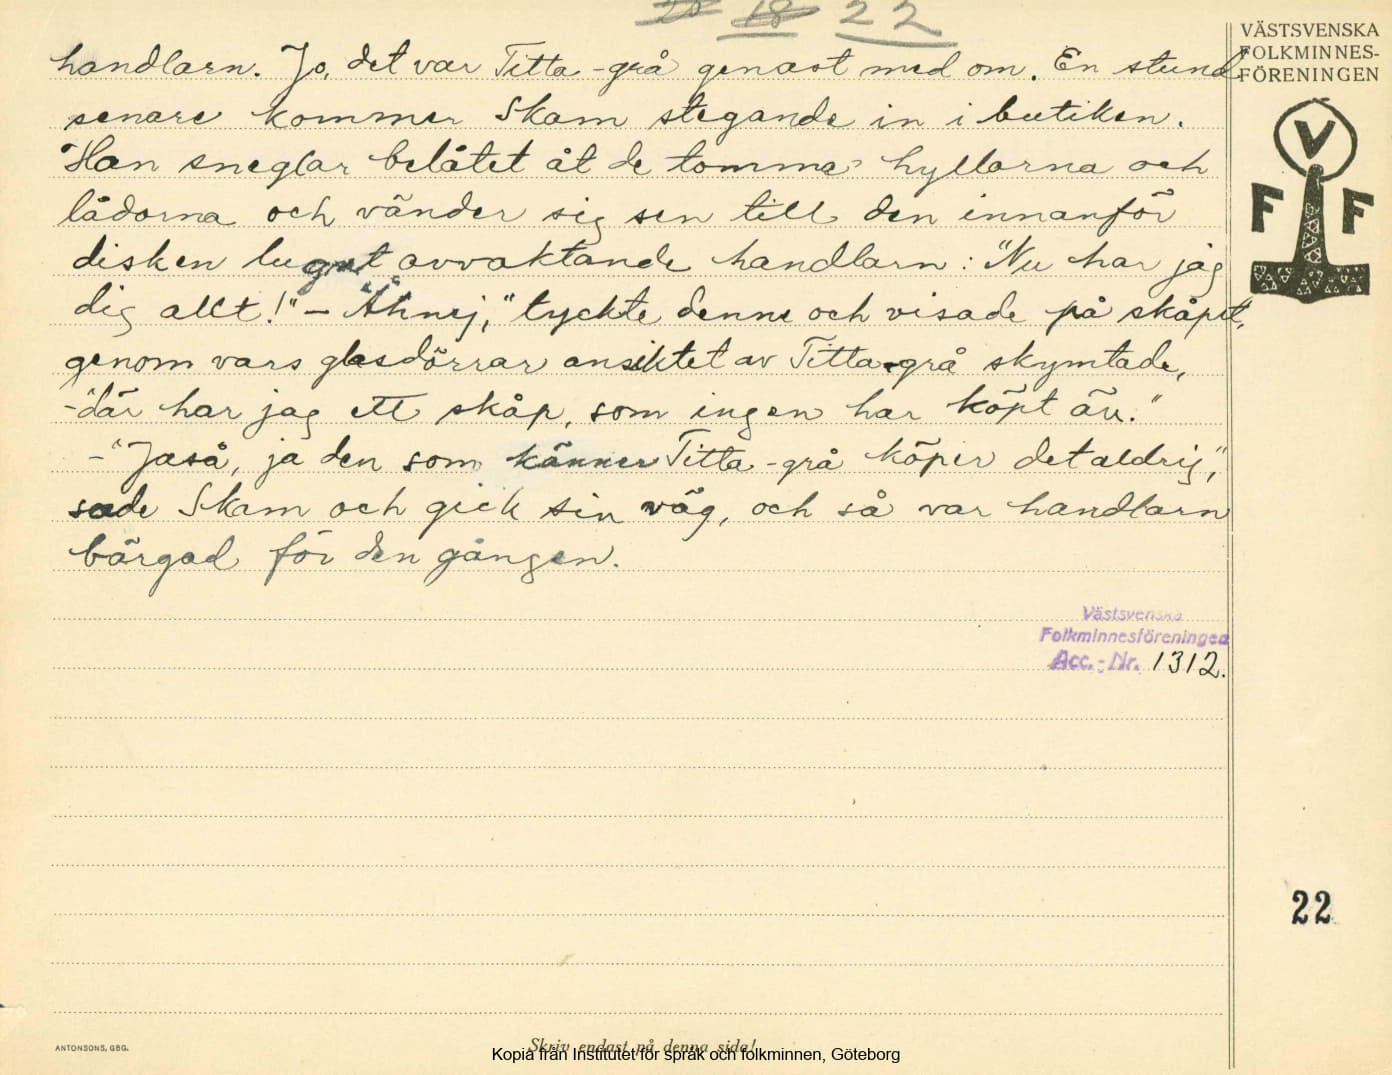 20 18 22
VÄSTSVENSKA
FOLKMINNES-
FÖRENINGEN
handlarn. Jo, det var Titta-grå genast med om. En stund
senare kommer Skam stegande in i butiken.
Han sneglar belåtet åt de tomma hyllorna och
lådorna och vänder sig sen till den innanför
disken lugnt avvaktande handlarn: "Nu har jag
dig allt!" – "Åhnej," tyckte denne och visade på skåpet,
genom vars glasdörrar ansiktet av Titta-grå skymtade,
-"där har jag ett skåp, som ingen har köpt än."
-"Jaså, ja den som känner Titta-grå köper det aldrig",
sade Skam och gick sin väg, och så var handlarn
bärgad för den gången.
V
F F
Västsvenska
Folkminnesföreningen
Acc.-Nr. 1312.
22
ANTONSONS, GBG.
Skriv endast på denna sida!
Kopia från Institutet för språk och folkminnen, Göteborg